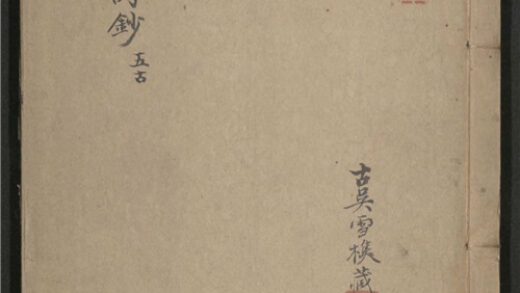 鈔
五古
古吳雪樵藏